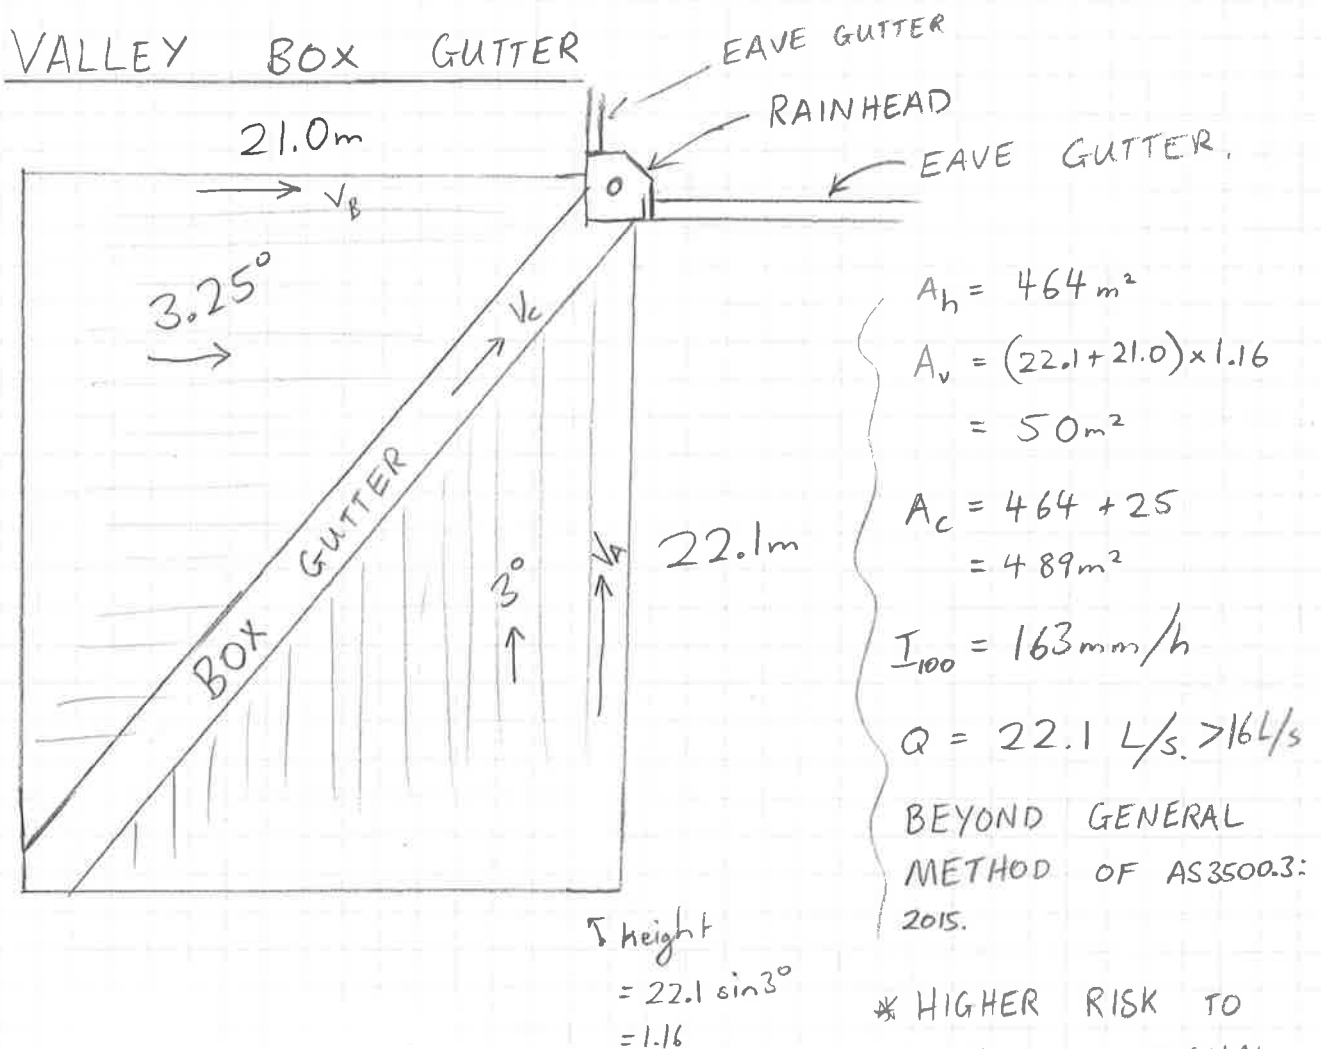 VALLEY BOX GUTTER
EAVE GUTTER
RAINHEAD
EAVE GUTTER.
21.0m
V_B
3.25°
V_C
BOX GUTTER
3°
V_A
22.1m
A_h = 464 m²
A_v = (22.1 + 21.0) × 1.16
= 50 m²
A_c = 464 + 25
= 489 m²
I_100 = 163 mm/h
Q = 22.1 L/s. >16 L/s
BEYOND GENERAL
METHOD OF AS3500.3:
2015.
height
= 22.1 sin3°
= 1.16
* HIGHER RISK TO